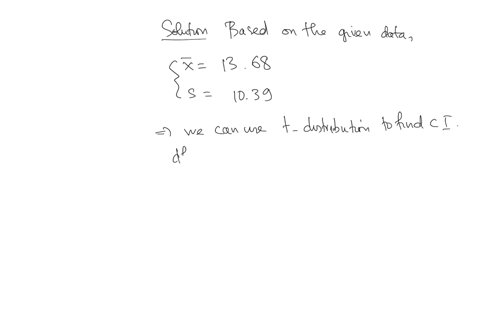 Solution Based on the given data,
x̄ = 13.68
s = 10.39
⇒ we can use t-distribution to find CI.
df